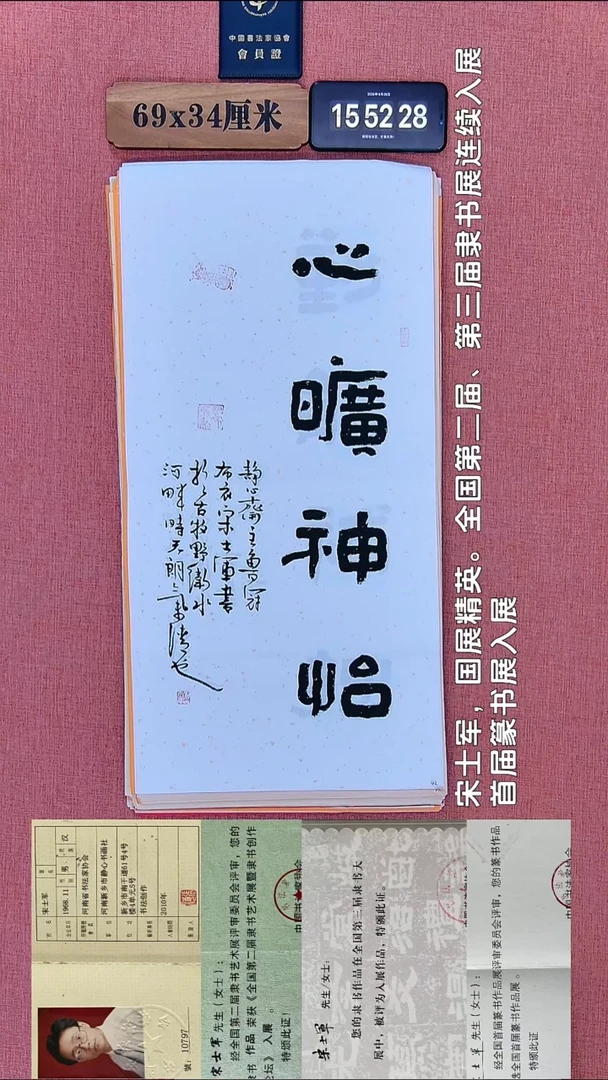 中國書法家協會
會員證
69x34厘米
15 52 28
心曠神怡
静心斋主鲁冠
布衣宋士军書
於古牧野衛水
河畔時天朗氣清也
宋士军，国展精英。全国第二届、第三届隶书展连续入展
首届篆书展入展
宋士军
男
汉
1968.11
河南省书法家协会
河南新乡市静心书画社
新乡市南干道61号4号
楼4单元5号
书法创作
2010年
號：10797
宋士军 先生（女士）：
经全国第二届隶书艺术展评审委员会评审，您的
隶书 作品 荣获《全国第二届隶书艺术展暨隶书创作
论坛》 入展 。
特颁此证！
宋士军 先生/女士：
您的隶书作品在全国第三届隶书大
展中，被评为入展作品，特颁此证。
士军 先生（女士）：
经全国首届篆书作品展评审委员会评审，您的篆书作品
全国首届篆书作品展。
特颁此证